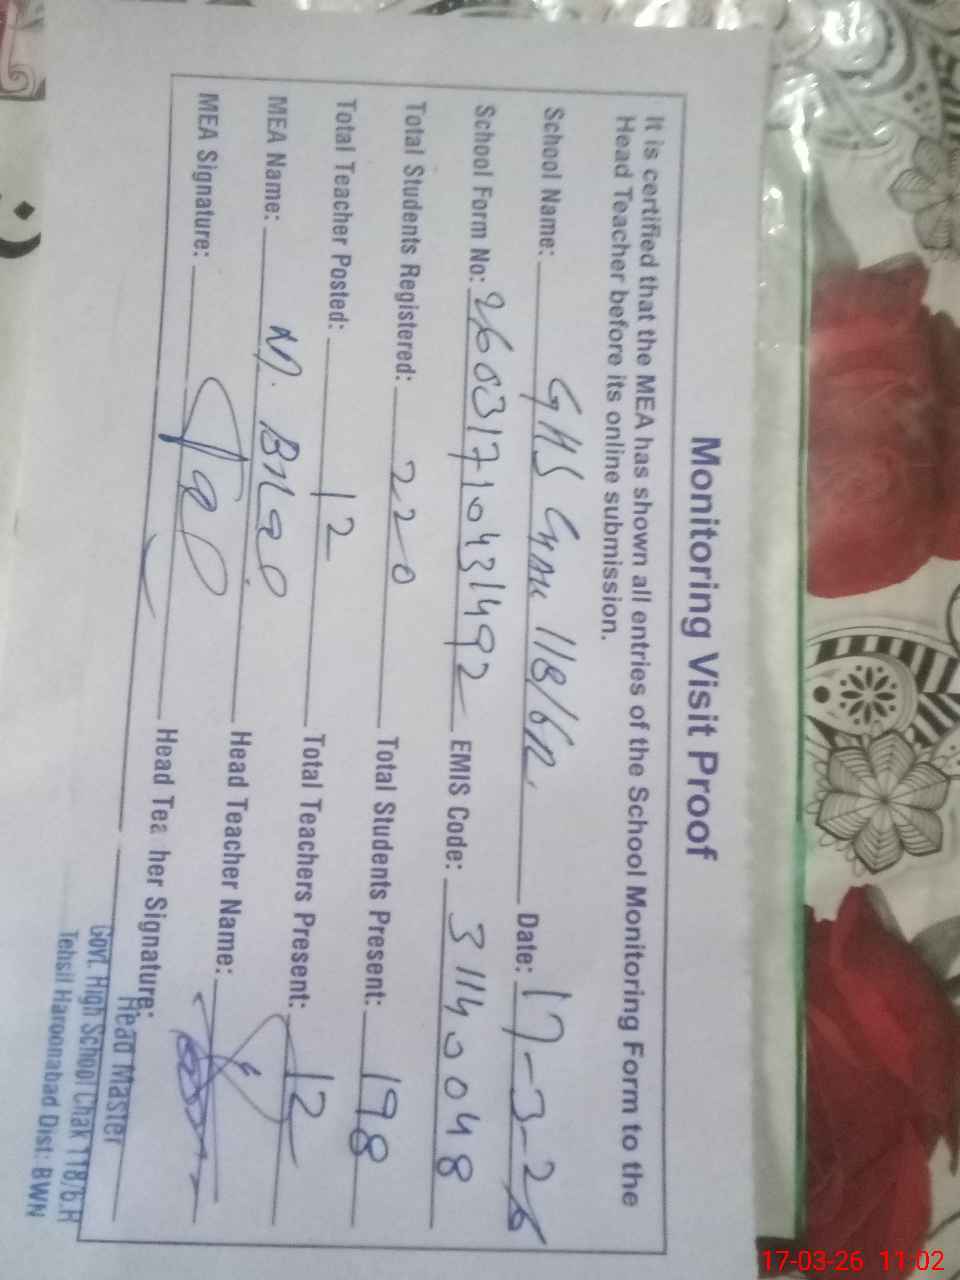 Monitoring Visit Proof
It is certified that the MEA has shown all entries of the School Monitoring Form to the
Head Teacher before its online submission.
School Name: GHS Chak 118/6R. Date: 17-3-26
School Form No: 26031710431492 EMIS Code: 31140048
Total Students Registered: 220 Total Students Present: 198
Total Teacher Posted: 12 Total Teachers Present: 12
MEA Name: M. Bilal Head Teacher Name:
MEA Signature: Head Tea her Signature:
Head Master
Govt. High School Chak 118/6.R
Tehsil Haroonabad Dist: BWN
17-03-26 11:02